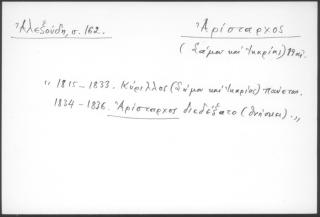 Ἀλεξούδη, σ. 162.
Ἀρίσταρχος
(Σάμου καὶ Ἰκαρίας) 19 αἰ.
" 1815 – 1833. Κύριλλος (Σάμου καὶ Ἰκαρίας)
1834 – 1836. Ἀρίσταρχος διεδέξατο (θνήσκει). "